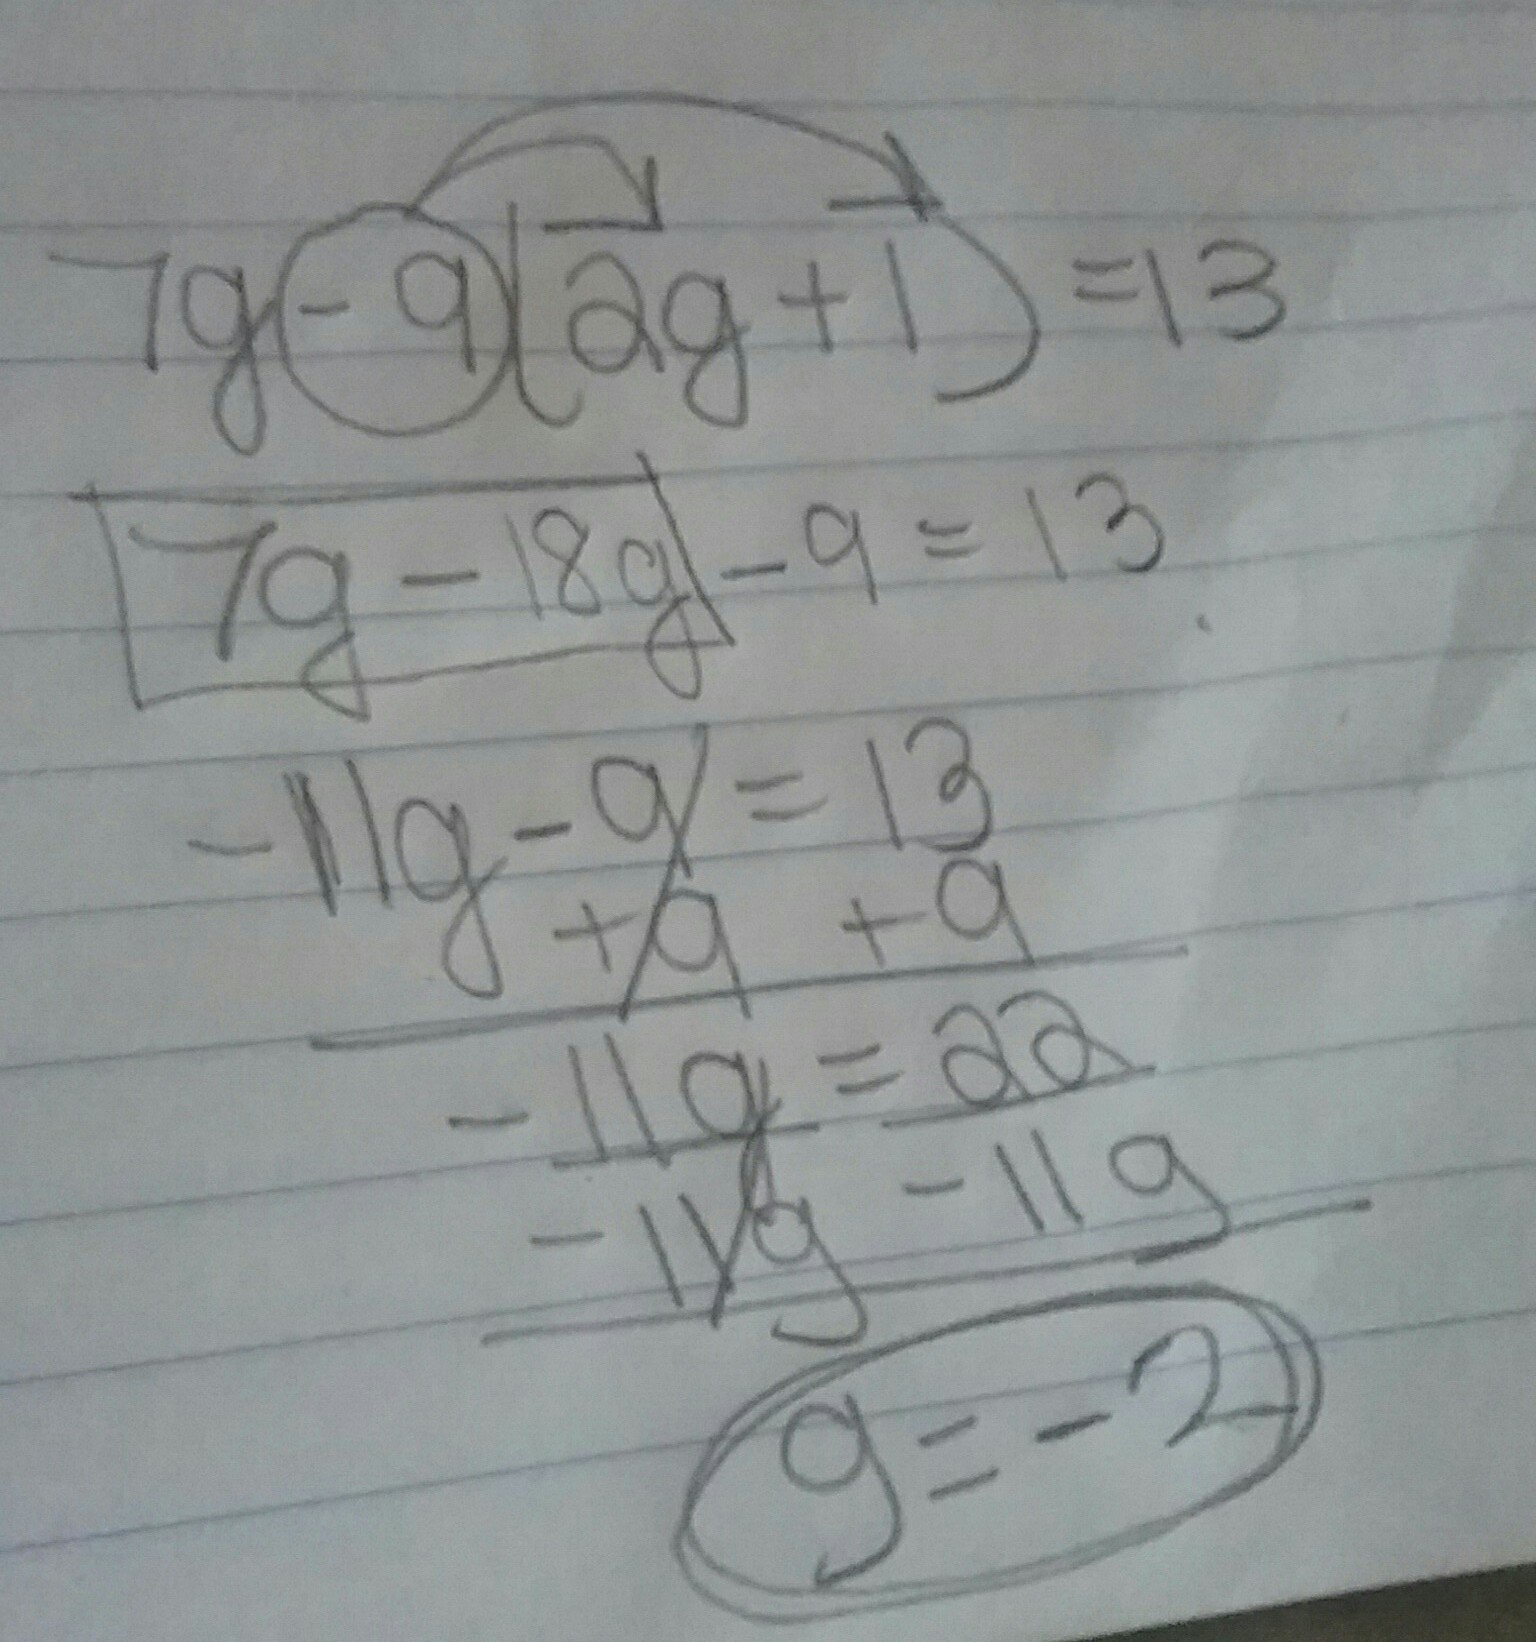 7g-9(2g+1)=13
7g-18g-9=13
-11g-9=13
+9 +9
-11g=22
-11g -11g
g=-2